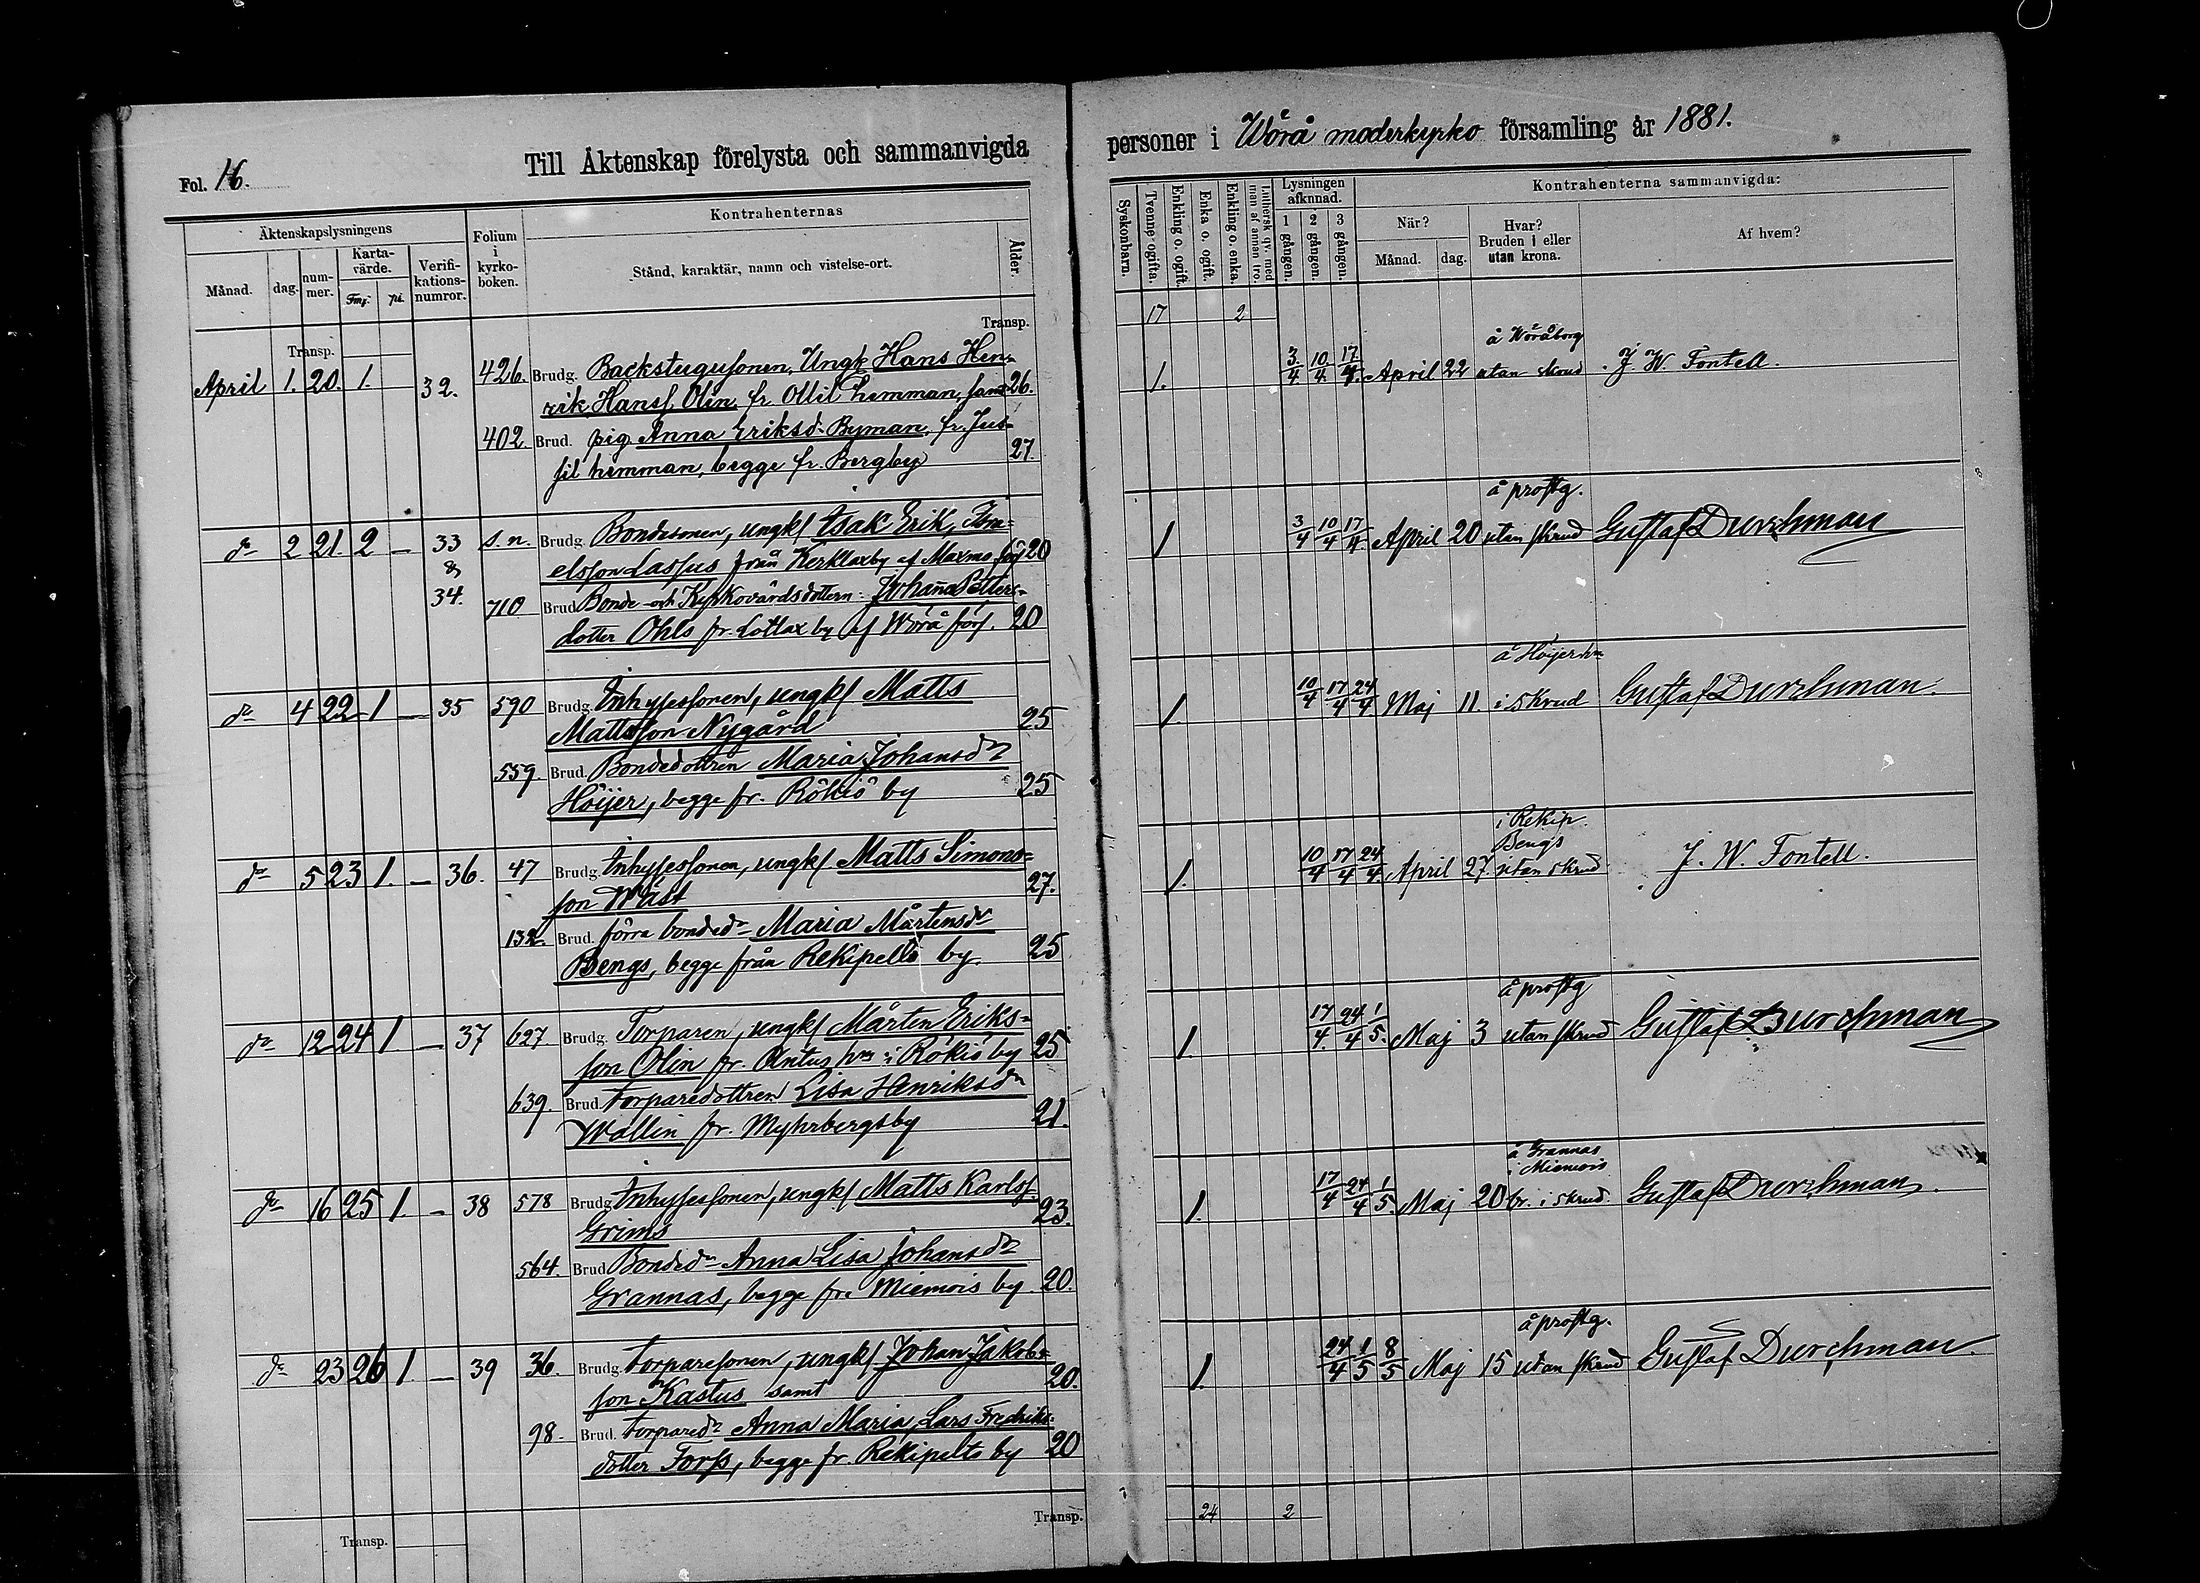 Fol. 16.
Till Äktenskap förelysta och sammanvigda
personer i Wörå moderkyrko församling år 1881.
Äktenskapslysningens
Månad.
dag.
num-
mer.
Karta-
värde.
Fmg.
pi.
Verifi-
kations-
numror.
Folium
i
kyrko-
boken.
Kontrahenternas
Stånd, karaktär, namn och vistelse-ort.
Ålder.
Syskonbarn.
Tvenne ogifta.
Enkling o. ogift.
Enka o. ogift.
Enkling o. enka.
Luthersk qv. med
man af annan tro.
Lysningen
afkunnad.
1 gången.
2 gången.
3 gången.
Kontrahenterna sammanvigda:
När?
Månad.
dag.
Hvar?
Bruden i eller
utan krona.
Af hvem?
Transp.
Transp.
17 2
April 1. 20. 1. 32. 426. Brudg. Backstugusonen, Ungk. Hans Hen-
rik Hanss. Olin fr. Ollil hemman, samt 26.
402 Brud. pig. Anna Eriksd. Byman, fr. Jus-
sil hemman, begge fr. Bergby 27.
1. 3/4 10/4 17/4 April 22
å Wöråborg
utan skrud
J. W. Fontell.
do 2 21. 2 — 33 s.n. Brudg. Bondesonen, ungk. Isak Erik, Isra-
& elsson Lassus från Kerklaxby af Maxmo förs. 20
34. 710 Brud Bonde- och Kyrkovärdsdottern Johanna Petters-
dotter Ohls fr. Lotlax by af Wörå förs. 20
1 3/4 10/4 17/4 April 20
å prostg.
utan skrud
Gustaf Durchman
do 4 22 1 — 35 590 Brudg. Inhyssessonen, ungk. Matts
Mattsson Nygård 25
559. Brud. Bondedottren Maria Johansdr
Höijer, begge fr. Rökiö by 25
1. 10/4 17/4 24/4 Maj 11
å Höijer hm
i skrud
Gustaf Durchman.
do 5 23 1. — 36. 47 Brudg. Inhyssessonen, ungk. Matts Simons-
son Wäst 27.
132. Brud. förra bondedr Maria Mårtensdr
Bengs, begge från Rekipelto by. 25
1. 10/4 17/4 24/4. April 27
i Rekip.
Bengs
utan skrud
J. W. Fontell.
do 12 24 1. — 37 627. Brudg. Torparen, ungk. Mårten Eriks-
son Olin fr. Antus hm i Rökiö by 25
639. Brud. Torparedottren Lisa Henriksdr
Wallin fr. Myhrbergsby 21.
1. 17/4. 24/4 1/5. Maj 3
å prostg
utan skrud
Gustaf Durchman
do 16 25 1. — 38 578 Brudg Inhyssessonen, ungk. Matts Karlss.
Grims 23.
564. Brud Bondedr Anna Lisa Johansdr
Grannas, begge fr. Miemois by 20.
1. 17/4 24/4 1/5. Maj 20
å Grannas
i Miemois
br. i skrud
Gustaf Durchman.
do 23 26 1. — 39 36. Brudg. Torparesonen, ungk. Johan Jakobs-
son Kastus samt 20.
98. Brud. Torparedr Anna Maria, Lars Fredriks-
dotter Forss, begge fr. Rekipelto by 20
1. 24/4 1/5 8/5 Maj 15
å prostg.
utan skrud
Gustaf Durchman.
Transp.
Transp.
24 2